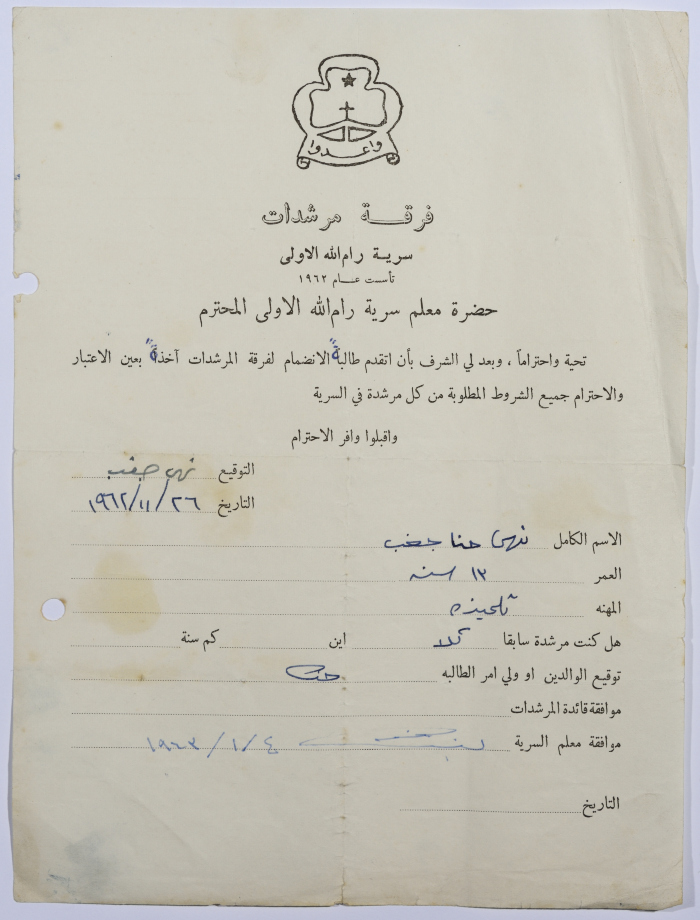 واعدوا
فرقة مرشدات
سرية رام الله الاولى
تأسست عام ١٩٦٢
حضرة معلم سرية رام الله الاولى المحترم
تحية واحتراماً ، وبعد لي الشرف بأن اتقدم طالبةً الانضمام لفرقة المرشدات آخذةً بعين الاعتبار
والاحترام جميع الشروط المطلوبة من كل مرشدة في السرية
واقبلوا وافر الاحترام
التوقيع نهى جغب
التاريخ ٢٦/١١/١٩٦٢
الاسم الكامل نهى حنا جغب
العمر ١٣ سنه
المهنه تلميذه
هل كنت مرشدة سابقا كلا اين كم سنة
توقيع الوالدين او ولي امر الطالبه حنا
موافقة قائدة المرشدات
موافقة معلم السرية ٤/١/١٩٦٣
التاريخ